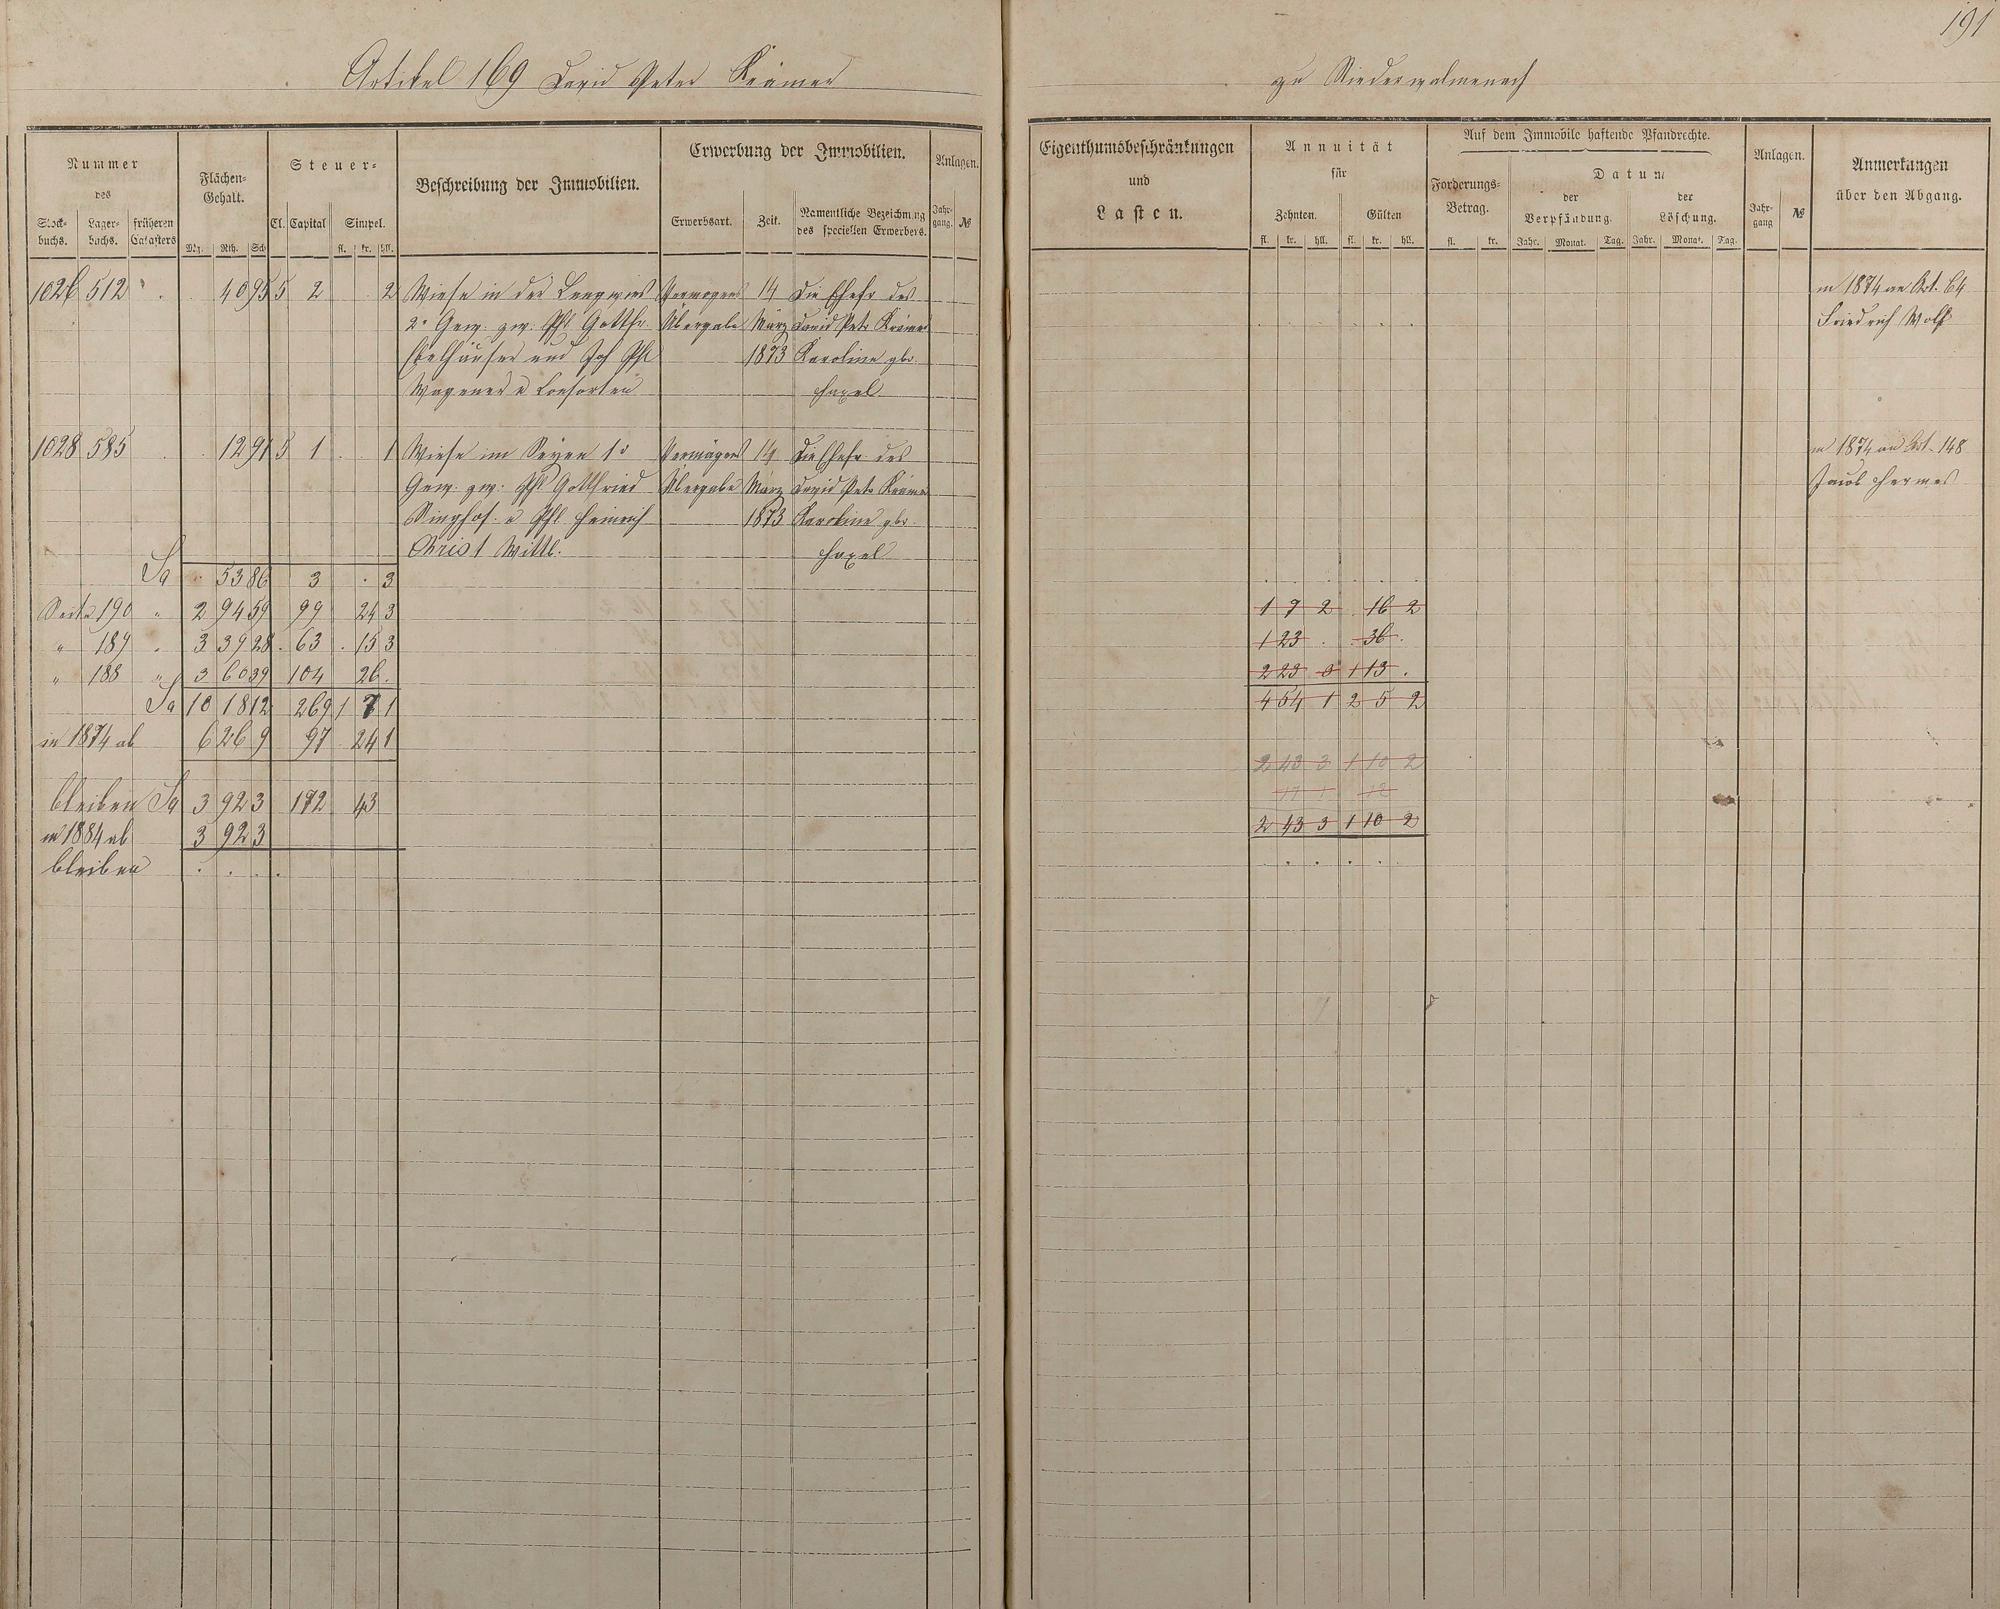 191
Artikel 169 David Peter Krämer zu Niederwalmenach
Nummer
des
Stock-buchs. Lager-buchs. früheren Catasters
Flächen-Gehalt.
Mg. Rth. Sch
Steuer-
Cl. Capital Simpel.
fl. kr. hll.
Beschreibung der Immobilien.
Erwerbung der Immobilien.
Erwerbsart. Zeit. Namentliche Bezeichnung des speciellen Erwerbers.
Anlagen.
Jahr-gang. №
Eigenthumsbeschränkungen
und
Lasten.
Annuität
für
Zehnten. Gülten
fl. kr. hll. fl. kr. hll.
Auf dem Immobile haftende Pfandrechte.
Forderungs-Betrag.
fl. kr.
Datum
der Verpfändung. der Löschung.
Jahr. Monat. Tag. Jahr. Monat. Tag.
Anlagen.
Jahr-gang №
Anmerkungen
über den Abgang.
1026 512 40 95 5 2 2 Wiese in der Langwies Vermögens 14 Die Ehefr des in 1874 an Art. 64
2r Gew. zw. Phl Gottfr. Übergabe März David Petr Krämer Friedrich Wolf
und Joh Phl 1873 Karoline gbr.
Wagener u Consorten
1028 585 12 91 5 1 1 Wiese im Seyen 1r Vermögens 14 Die Ehefr des in 1874 an Art. 148
Gew. zw. Phl Gottfried Übergabe März David Petr Krämer Jacob Hermes
Singhof u Phl Heinrich 1873 Karoline gbr.
Christ Wittl.
Sa 53 86 3 3
Seite 190 " 2 94 59 99 24 3 1 7 2 16 2
" 189 " 3 39 28 63 15 3 1 23 36
" 188 " 3 60 39 104 26 2 23 3 1 13
Sa 10 18 12 269 1 7 1 4 54 1 2 5 2
in 1874 ab 6 26 9 97 24 1
2 43 3 1 10 2
bleiben Sa 3 92 3 172 43
in 1884 ab 3 92 3 2 43 3 1 10 2
bleiben